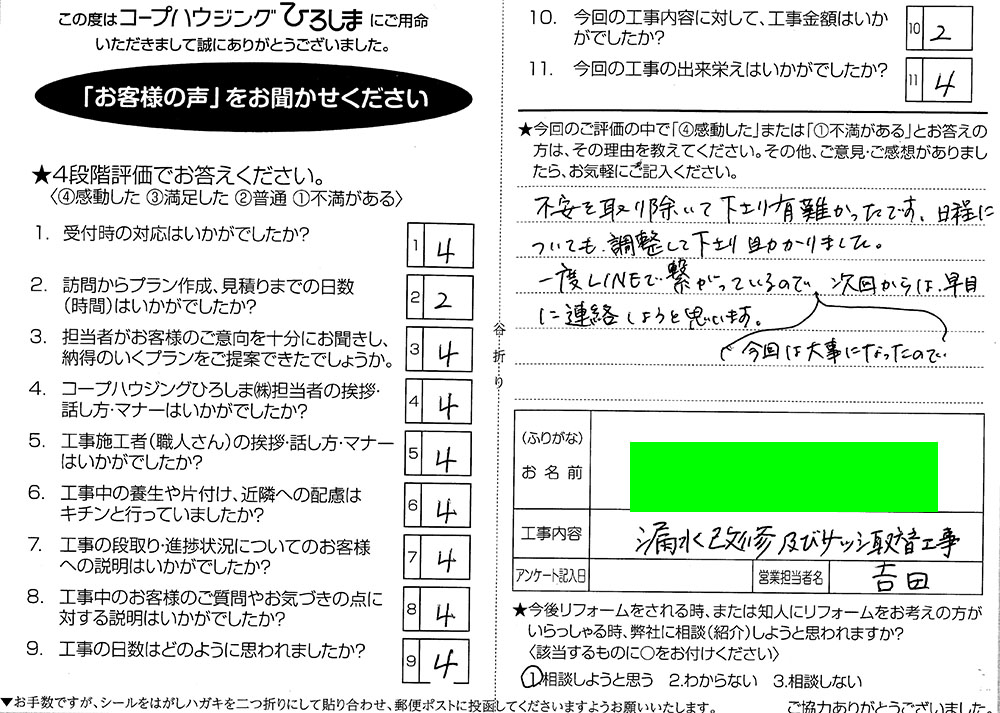 この度はコープハウジングひろしまにご用命
いただきまして誠にありがとうございました。
「お客様の声」をお聞かせください
★4段階評価でお答えください。
〈④感動した ③満足した ②普通 ①不満がある〉
1. 受付時の対応はいかがでしたか?
1 4
2. 訪問からプラン作成、見積りまでの日数
(時間)はいかがでしたか?
2 2
3. 担当者がお客様のご意向を十分にお聞きし、
納得のいくプランをご提案できたでしょうか。
3 4
4. コープハウジングひろしま㈱担当者の挨拶・
話し方・マナーはいかがでしたか?
4 4
5. 工事施工者(職人さん)の挨拶・話し方・マナー
はいかがでしたか?
5 4
6. 工事中の養生や片付け、近隣への配慮は
キチンと行っていましたか?
6 4
7. 工事の段取り・進捗状況についてのお客様
への説明はいかがでしたか?
7 4
8. 工事中のお客様のご質問やお気づきの点に
対する説明はいかがでしたか?
8 4
9. 工事の日数はどのように思われましたか?
9 4
▼お手数ですが、シールをはがしハガキを二つ折りにして貼り合わせ、郵便ポストに投函してくださいますようお願いいたします。
谷折り
10. 今回の工事内容に対して、工事金額はいか
がでしたか?
10 2
11. 今回の工事の出来栄えはいかがでしたか?
11 4
★今回のご評価の中で「④感動した」または「①不満がある」とお答えの
方は、その理由を教えてください。その他、ご意見・ご感想がありまし
たら、お気軽にご記入ください。
不安を取り除いて下さり有難かったです。日程に
ついても、調整して下さり助かりました。
一度LINEで繋がっているので、次回からは、早目
に連絡しようと思います。
(今回は大事になったので
(ふりがな)
お名前
工事内容
漏水改修及びサッシ取替工事
アンケート記入日
営業担当者名
吉田
★今後リフォームをされる時、または知人にリフォームをお考えの方が
いらっしゃる時、弊社に相談(紹介)しようと思われますか?
〈該当するものに○をお付けください〉
1.相談しようと思う 2.わからない 3.相談しない
ご協力ありがとうございました。